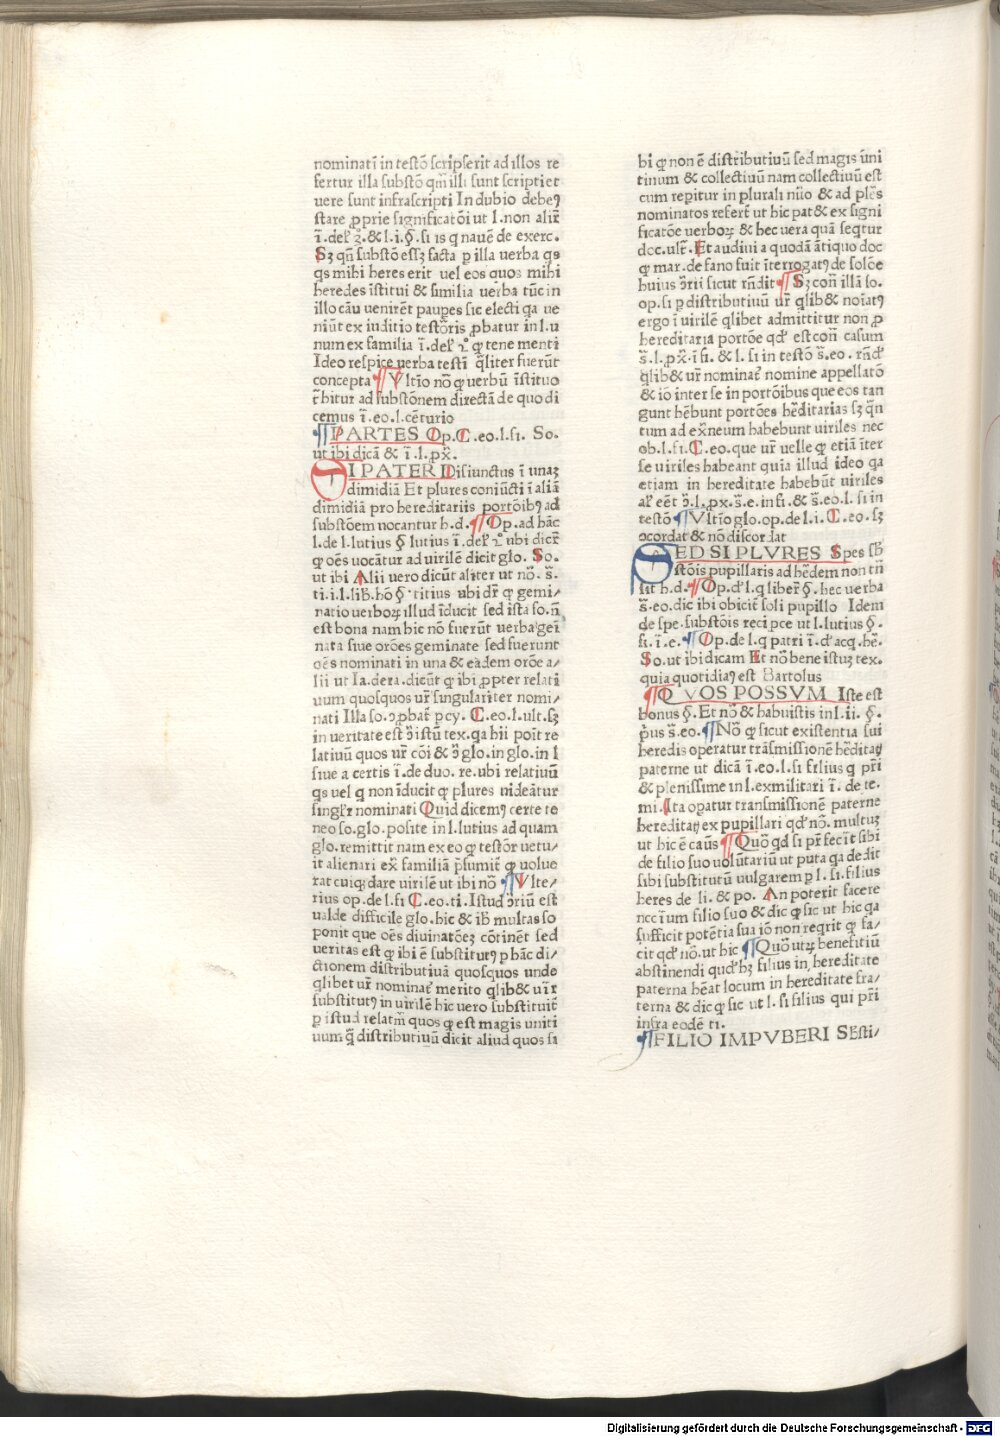 nominatī in testō scripserit ad illos re
fertur illa substō qm̄ illi sunt scripti et
uere sunt infrascripti In dubio debeꝫ
stare ꝓprie significatōi ut l. non alir̄
ī. del̄. ʒ. & l. i. §. si is q nauē de exerc.
Sꝫ qn̄ substō essꝫ facta p illa uerba qs
qs mihi heres erit uel eos quos mihi
heredes īstitui & similia uerba tūc in
illo cāu uenirēt paupes sic electi qa ue
niūt ex iuditio testōris ꝓbatur in l. u
num ex familia ī. del̄. ꝙ tene menti
Ideo respice uerba testī qliter fuerūt
concepta ¶ Vltīo nō ꝙ uerbū īstituo
r̄hitur ad substōnem directā de quo di
cemus ī. eo. l. cēturio
¶ PARTES Op. C. eo. l. fi. So.
ut ibi dicā & ī. l. ꝓx̄.
SI PATER Disiunctus ī unaꝫ
dimidiā Et plures coniūcti ī aliā
dimidiā pro hereditariis portōibꝰ ad
substōem uocantur h. d. ¶ Op. ad hāc
l. de l. lutius § lutius ī. del̄. ubi dicr̄
ꝙ oēs uocātur ad uirilē dicit glo. So.
ut ibi Alii uero dicūt aliter ut nō. s̄.
ti. i. l. lib̄. hō § titius ubi dr̄ ꝙ gemi/
natio uerboꝝ illud īducit sed ista so. n̄
est bona nam hic nō fuerūt uerba gei
nata siue orōes geminate sed fuerunt
oēs nominati in una & eadem orōe a/
lii ut Ia. de ra. dicūt ꝙ ibi ꝓpter relati
uum quosquos ur̄ singulariter nomi/
nati Illa so. ꝓbat̄ p cy. C. eo. l. ult. sꝫ
in ueritate est ↄ̄ istū tex. qa hii poīt re
latiuū quos ur̄ cōi & ↄ̄ glo. in glo. in l
siue a certis ī. de duo. re. ubi relatiuū
qs uel q non īducit ꝙ plures uideātur
singlr̄ nominati Quid dicemꝰ certe te
neo so. glo. posite in l. lutius ad quam
glo. remittit nam ex eo ꝙ testōr uetu/
it alienari ex̄ familiā p̄sumit̄ ꝙ uolue
rat cuiqꝫ dare uirilē ut ibi nō ¶ Vlte/
rius op. de l. fi C. eo. ti. Istud ↄ̄riū est
ualde difficile glo. hic & ib̄ multas so
ponit que oēs diuinatōeꝫ cōtinēt sed
ueritas est ꝙ ibi ē substitutꝰ p hāc di/
ctionem distributiuā quosquos unde
qlibet ur̄ nominat̄ merito qlib& uīr
substitutꝰ in uirilē hic uero substituit̄
p istud relatiū quos ꝙ est magis uniti
uum q̄ distributiuū dicit aliud quos si
bi ꝙ non ē distributiuū sed magis uni
tinum & collectiuū nam collectiuū est
cum repitur in plurali nūo & ad ples
nominatos refert̄ ut hic pat& ex signi
ficatōe uerboꝝ & hec uera quā seqtur
doc. ulr̄. Et audiui a quodā ātiquo doc
ꝙ mar. de fano fuit īterrogatꝰ de solōe
huius ↄ̄rii sicut rn̄dit ¶ Sꝫ con̄ illā so.
op. si p distributiuū ur̄ qlib& noīatꝰ
ergo ī uirilē qlibet admittitur non ꝓ
hereditaria portōe qd̄ est con̄ casum
s̄. l. ꝓx̄. ī fi. & l. si in testō s̄. eo. rn̄d̄
qlib& ur̄ nominat̄ nomine appellatō
& iō inter se in portōibus que eos tan
gunt hēbunt portōes hēditarias sꝫ q̄n
tum ad ex̄neum habebunt uiriles nec
ob. l. fi. C. eo. que ur̄ uelle ꝙ etiā īter
se uiriles habeant quia illud ideo qa
etiam in hereditate habebūt uiriles
al̄ eēt ↄ̄. l. ꝓx. s̄. e. in fi. & s̄. eo. l. si in
testō ¶ Vltīo glo. op. de l. i. C. eo. sꝫ
ↄcordat & nō discordat
SED SI PLVRES Spes sb̄
stōis pupillaris ad hēdem non tn̄
sit h. d. ¶ Op. d̄ l. q liber̄ §. hec uerba
s̄. eo. dic ibi obicit̄ soli pupillo Idem
de spe. substōis recipce ut l. lutius §.
fi. ī. e. ¶ Op. de l. q patri ī. d̄ acq. hē.
So. ut ibi dicam Et nō bene istuꝫ tex.
quia quotidiaꝰ est Bartolus
¶ QVOS POSSVM Iste est
bonus §. Et nō & habuistis in l. ii. §.
p̄us s̄. eo. ¶ Nō ꝙ sicut existentia sui
heredis operatur trāsmissionē hēditaꝫ
paterne ut dicā ī. eo. l. si filius q pr̄i
& plenissime in l. ex militari ī. de te.
mi. Ita oꝑatur transmissionē paterne
hereditaꝫ ex pupillari qd̄ nō. multuꝫ
ut hic ē caūs ¶ Quō qd si pr̄ fecit sibi
de filio suo uolūtariū ut puta qa dedit
sibi substitutū uulgarem p l. si. filius
heres de li. & po. An poterit facere
nec īum filio suo & dic ꝙ sic ut hic qa
sufficit potētia sua iō non reqrit ꝙ fa/
cit qd̄ nō. ut hic ¶ Quō utꝝ benefitiū
abstinendi qud̄ hꝫ filius in hereditate
paterna hēat locum in hereditate fra/
terna & dic ꝙ sic ut l. si filius qui pr̄i
infra eodē ti.
¶ FILIO IMPVBERI Sb̄sti/
Digitalisierung gefördert durch die Deutsche Forschungsgemeinschaft - DFG